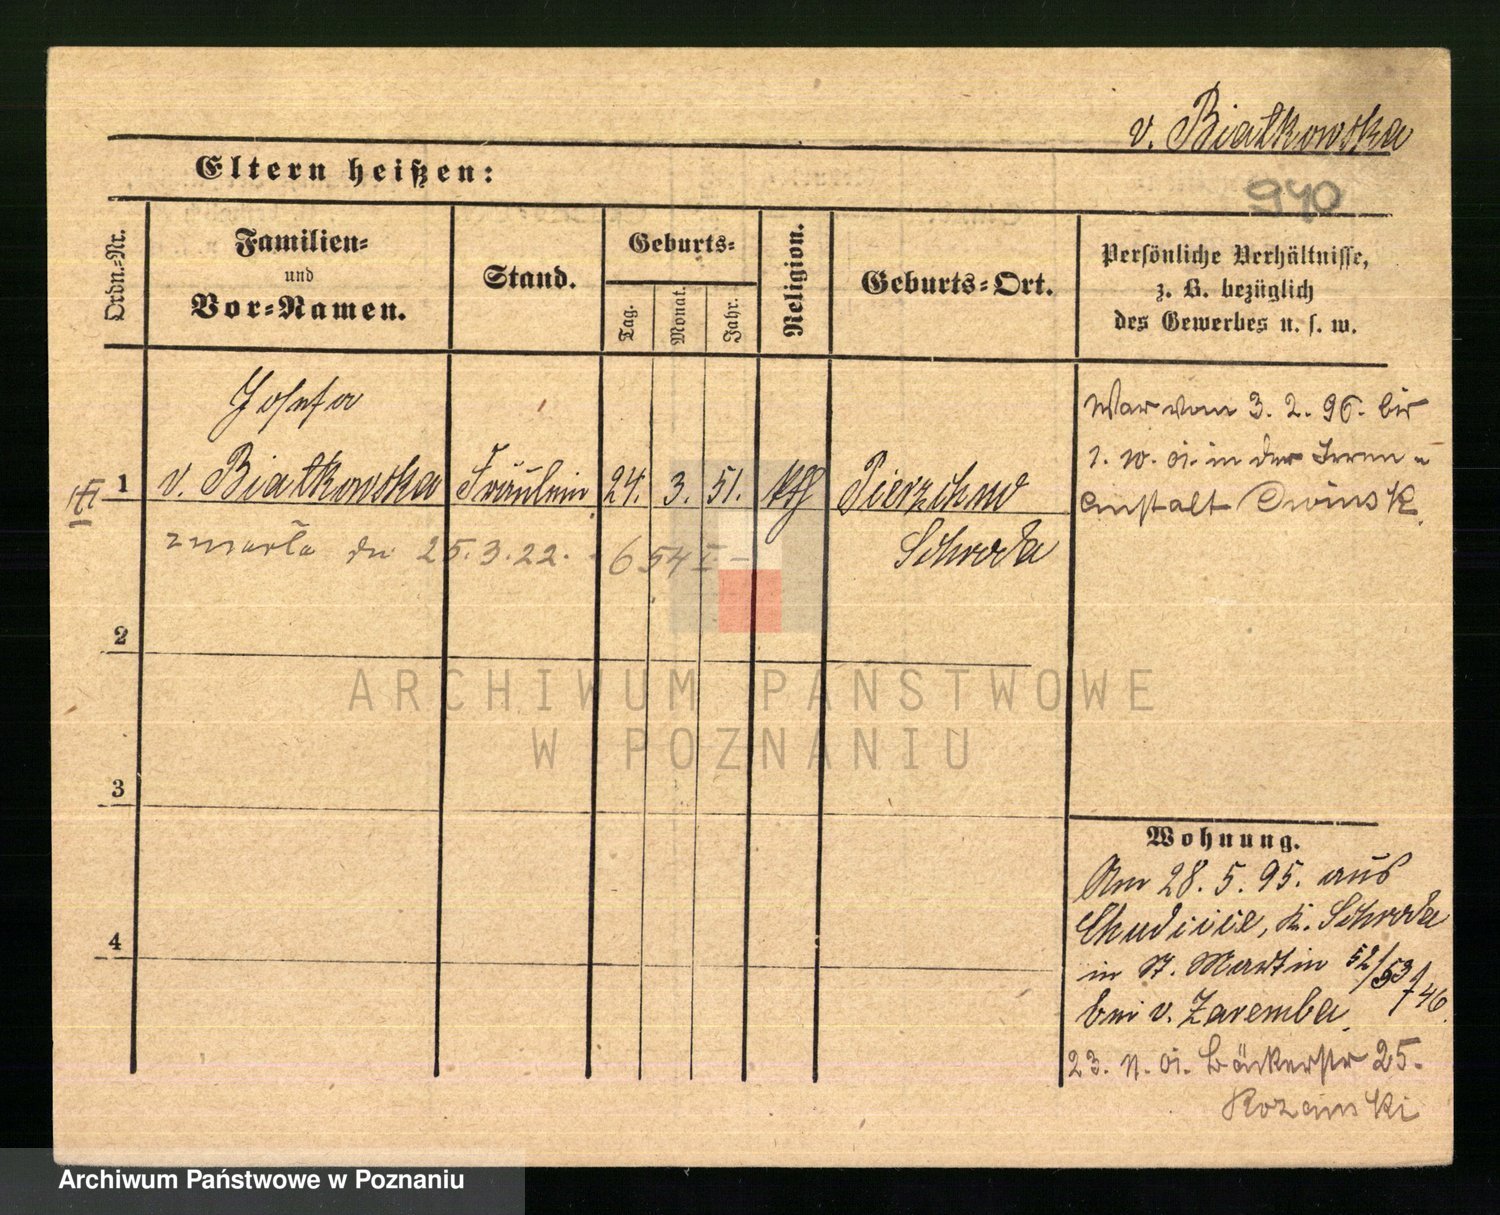 v. Białkowska
940
Eltern heißen:
Ordn.-Nr.
Familien-
und
Vor-Namen.
Stand.
Geburts-
Tag.
Monat.
Jahr.
Religion.
Geburts-Ort.
Persönliche Verhältnisse,
z. B. bezüglich
des Gewerbes u. s. w.
Josefa
1 v. Białkowska Fräulein 24. 3. 51. kth Pierzchno
Schroda
zmarła dn. 25.3.22. - 654 I -
War vom 3. 2. 96. bis
1. 10. 01. in der Irren-
anstalt Owinsk.
2
3
4
Wohnung.
Am 28. 5. 95. aus
Chudzice, K. Schroda
in St. Martin 52/53/46
bei v. Zaremba.
23. 11. 01. Bäckerstr 25.
ARCHIWUM PAŃSTWOWE
W POZNANIU
Archiwum Państwowe w Poznaniu